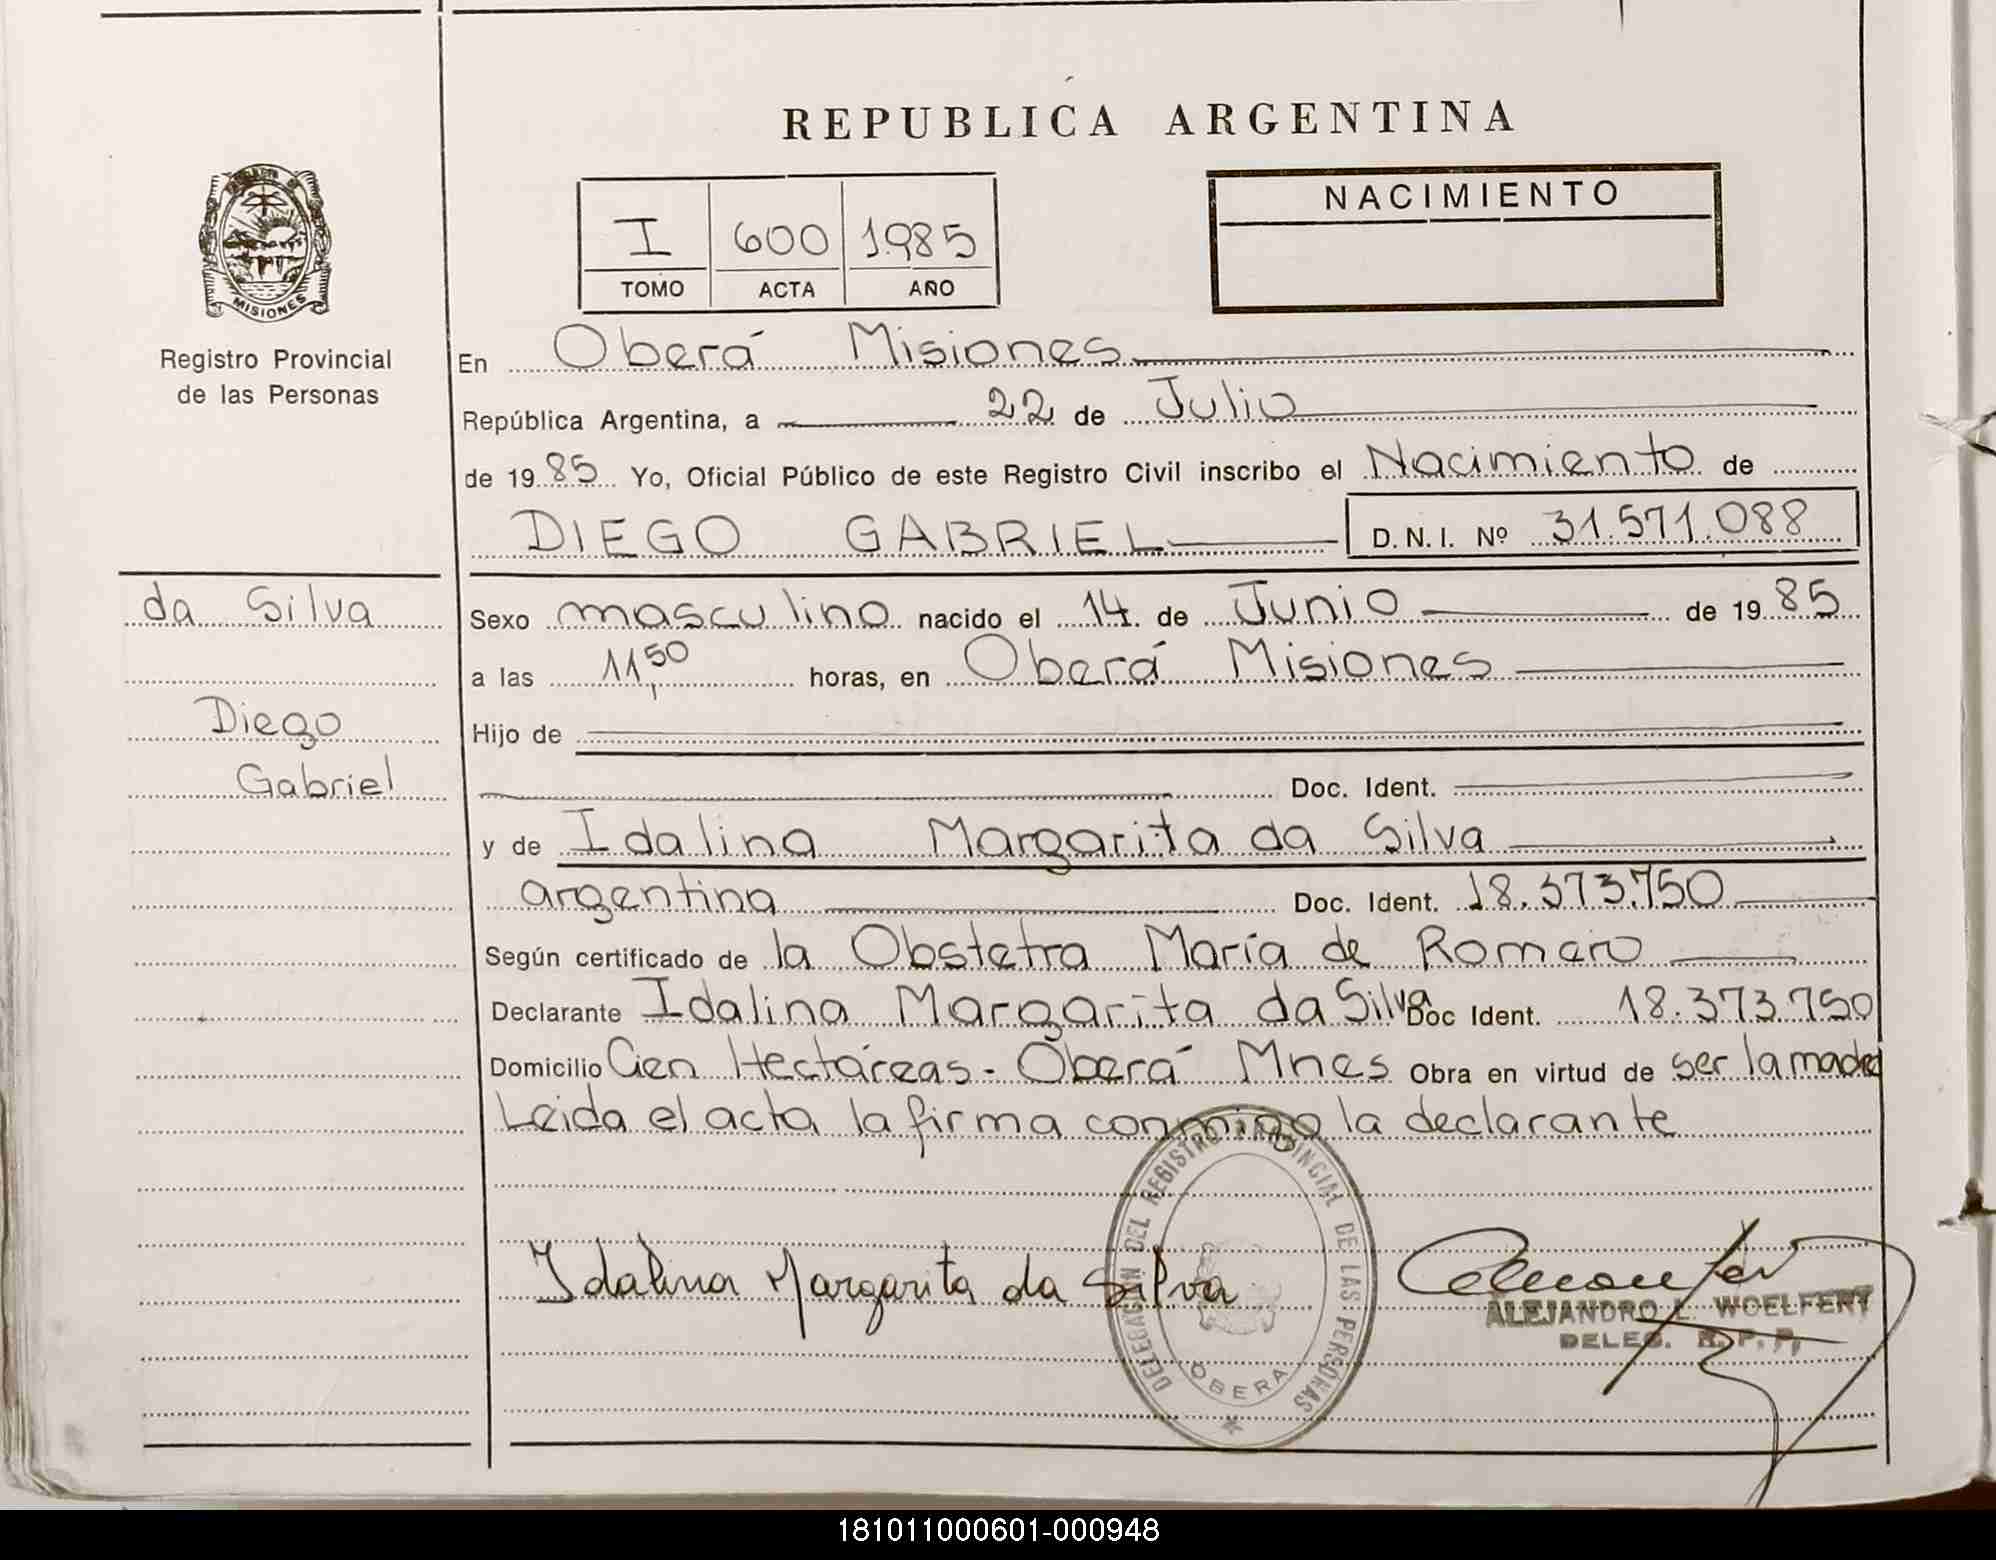 REPUBLICA ARGENTINA
MISIONES
Registro Provincial
de las Personas
I 600 1985
TOMO ACTA AÑO
NACIMIENTO
En Oberá Misiones
República Argentina, a 22 de Julio
de 1985 Yo, Oficial Público de este Registro Civil inscribo el Nacimiento de
DIEGO GABRIEL D.N.I. Nº 31.571.088
da Silva
Diego
Gabriel
Sexo masculino nacido el 14 de Junio de 1985
a las 11,50 horas, en Oberá Misiones
Hijo de
Doc. Ident.
y de Idalina Margarita da Silva
argentina Doc. Ident. 18.373.750
Según certificado de la Obstetra María de Romero
Declarante Idalina Margarita da Silva Doc Ident. 18.373.750
Domicilio Cien Hectáreas - Oberá Mnes Obra en virtud de ser la madre
Leida el acta la firma conmigo la declarante
Idalina Margarita da Silva
DELEGACIÓN DEL REGISTRO PROVINCIAL DE LAS PERSONAS
OBERA
ALEJANDRO L. WOELFERT
DELEG. R. P. P.
181011000601-000948